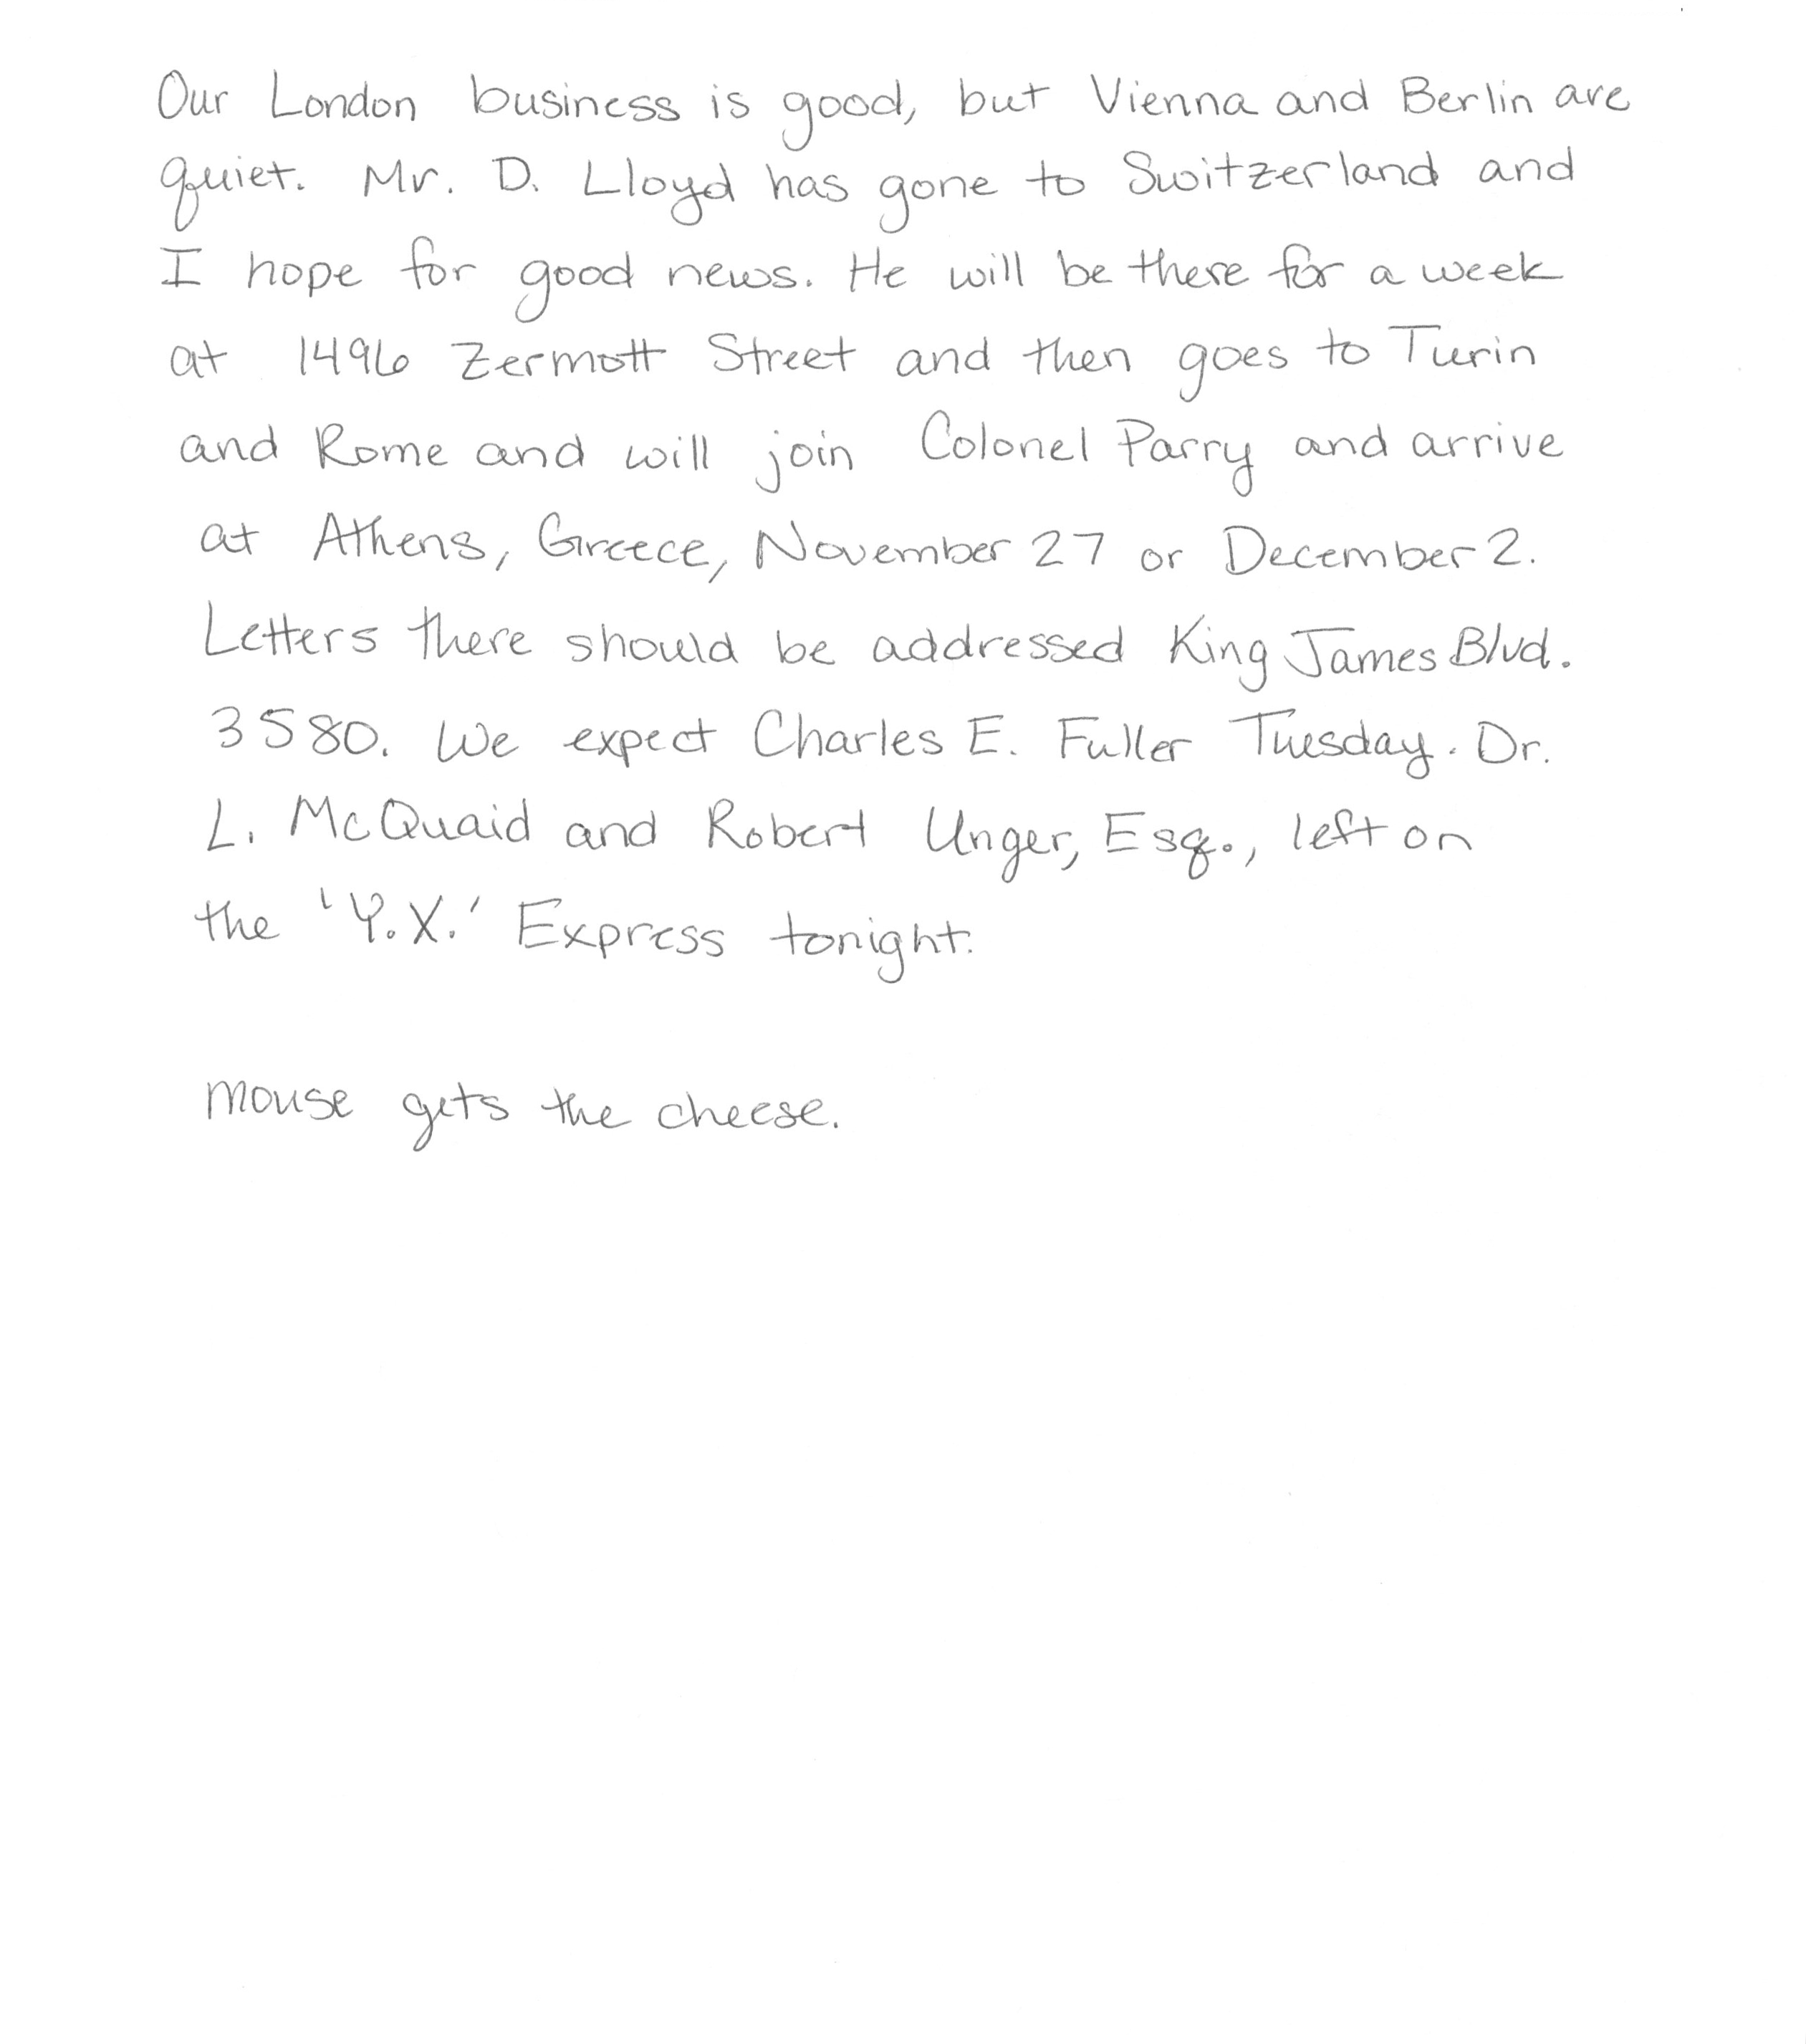 Our London business is good, but Vienna and Berlin are
quiet. Mr. D. Lloyd has gone to Switzerland and
I hope for good news. He will be there for a week
at 1496 Zermott Street and then goes to Turin
and Rome and will join Colonel Parry and arrive
at Athens, Greece, November 27 or December 2.
Letters there should be addressed King James Blvd.
3580. We expect Charles E. Fuller Tuesday. Dr.
L. McQuaid and Robert Unger, Esq., left on
the 'Y.X.' Express tonight.
mouse gets the cheese.